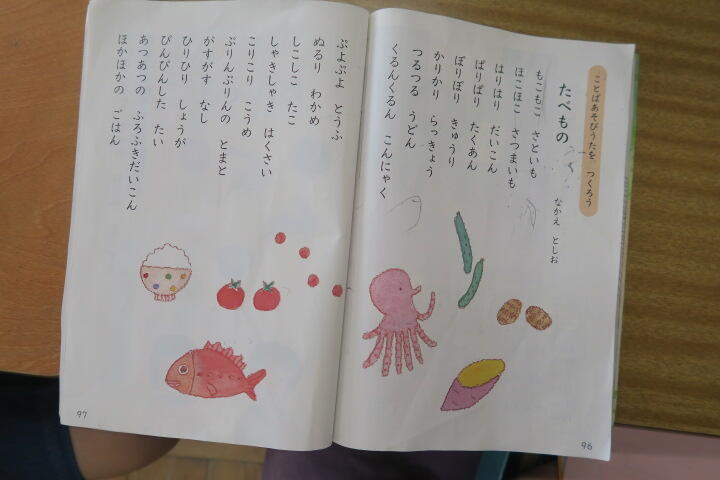 ことばあそびうたを つくろう
たべもの
なかえ としお
もこもこ さといも
ほこほこ さつまいも
はりはり だいこん
ぱりぱり たくあん
ぽりぽり きゅうり
かりかり らっきょう
つるつる うどん
くるんくるん こんにゃく
ぷよぷよ とうふ
ぬるり わかめ
しこしこ たこ
しゃきしゃき はくさい
こりこり こうめ
ぷりんぷりんの とまと
がすがす なし
ひりひり しょうが
ぴんぴんした たい
あつあつの ふろふきだいこん
ほかほかの ごはん
96
97